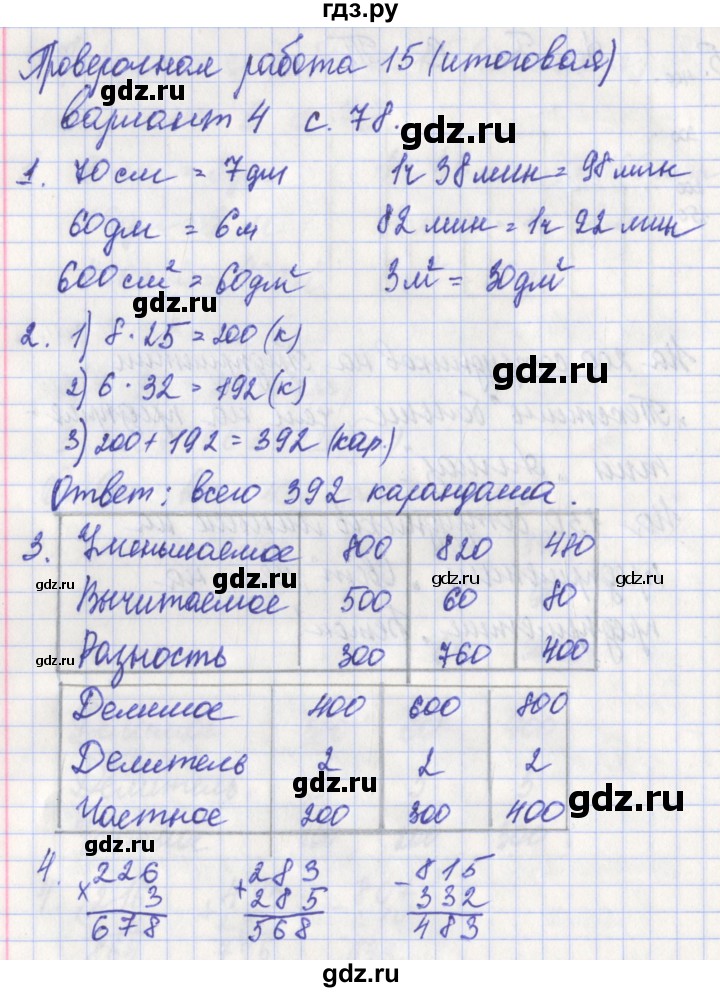 гдз.ру
Проверочная работа 15 (итоговая)
gdz.ru
вариант 4 с. 78.
gdz.ru
1. 70 см = 7 дм 1ч 38 мин = 98 мин
gdz.ru
60 дм = 6 м 82 мин = 1ч 22 мин
600 см² = 60 дм² 3 м² = 30 дм²
gdz.ru
2. 1) 8 · 25 = 200 (к)
2) 6 · 32 = 192 (к)
gdz.ru
3) 200 + 192 = 392 (кар.)
gdz.ru
Ответ: всего 392 карандаша.
3. Уменьшаемое 800 820 480
gdz.ru gdz.ru gdz.ru gdz.ru
Вычитаемое 500 60 80
Разность 300 760 400
gdz.ru
Делимое 400 600 800
Делитель 2 2 2
gdz.ru
Частное 200 300 400
gdz.ru
4. 226 283 815
× 3 + 285 - 332
678 568 483
gdz.ru
gdz.ru